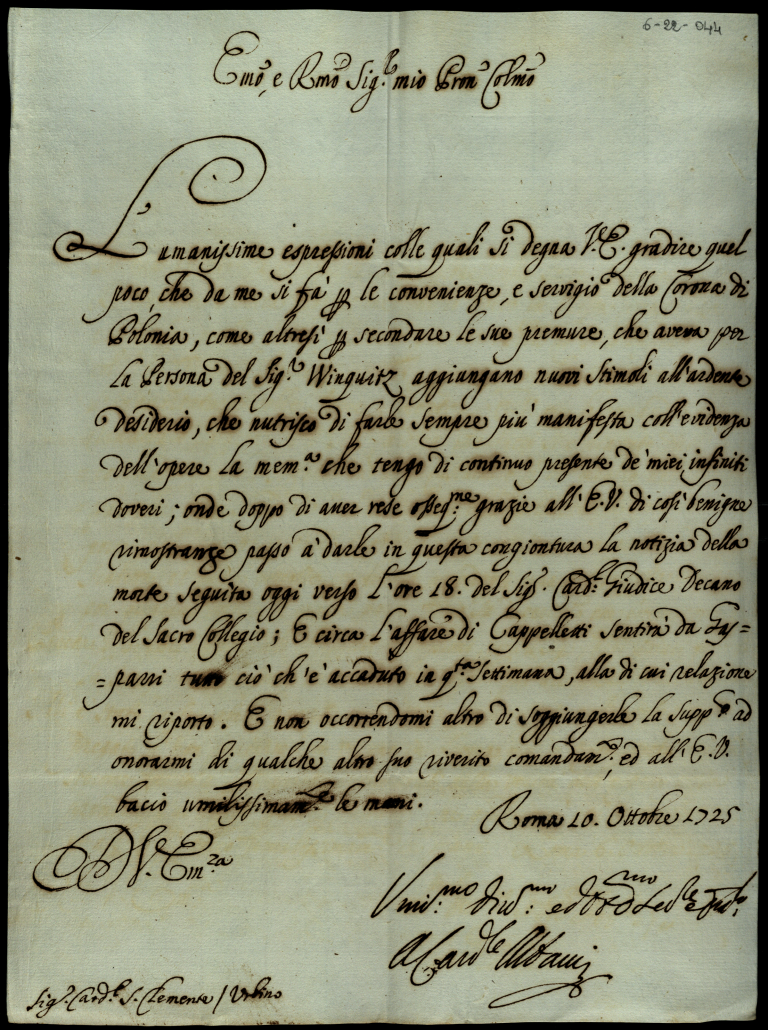 6-22-044
Emõ, e Rmõ Sig.r mio Pron͂ Colmõ
L'umanissime espressioni colle quali si degna V.E. gradire quel
poco, che da me si fà p le convenienze, e servigio della Corona di
Polonia, come altresì p secondare le sue premure, che aveva per
la Persona del Sig.r Winquitz aggiungano nuovi stimoli all'ardente
desiderio, che nutrisco di farle sempre più manifesta coll'evidenza
dell'opere la mem.a che tengo di continuo presente de' miei infiniti
doveri; onde doppo di aver rese osseq.me grazie all'E.V. di così benigne
rimostranze passo à darle in questa congiontura la notizia della
morte seguita oggi verso l'ore 18. del Sig.r Card.l Giudice Decano
del Sacro Collegio; E circa l'affare di Cappelletti sentirà da Gas=
=parri tutto ciò ch'è accaduto in q.ta Settimana, alla di cui relazione
mi riporto. E non occorrendomi altro di soggiungerle la supp.co ad
onorarmi di qualche altro suo riverito comandam.to, ed all'E.V.
bacio umilissimam.te le mani.
Roma 10. Ottobre 1725
D V.E. Em.za
Umil.mo div.mo ed
A Card.le Albani
Sig.r Card.l S. Clemente / Urbino